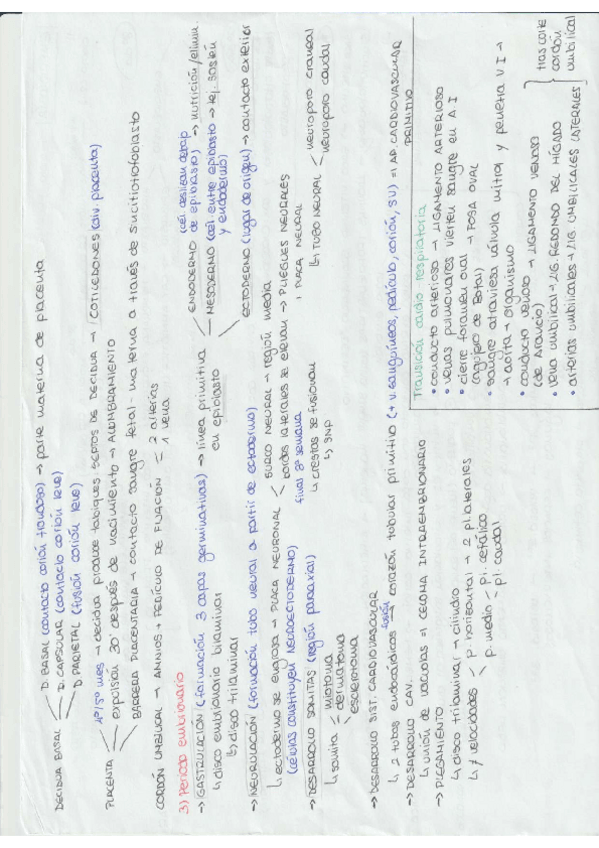 DECIDUA BASAL
D. BASAL (contacto corión frondoso) → parte materna de placenta
D. CAPSULAR (contacto corión leve)
D. PARIETAL (fusión corión leve)
PLACENTA
4º/5º mes → decidua produce tabiques: SEPTOS DE DECIDUA → COTILEDONES (div. placenta)
expulsión 30' después de nacimiento → ALUMBRAMIENTO
BARRERA PLACENTARIA → contacto sangre fetal-materna a través de sincitiotrofoblasto
CORDÓN UMBILICAL → AMNIOS + PEDÍCULO DE FIJACIÓN
2 arterias
1 vena
3) Periodo embrionario
→ GASTRULACIÓN (formación 3 capas germinativas) → línea primitiva
en epiblasto
↳ disco embrionario bilaminar
↳ disco trilaminar
ENDODERMO (cél. deslizan debajo de epiblasto) → nutrición/elimin.
MESODERMO (cél. entre epiblasto y endodermo) → tej. sostén
ECTODERMO (lugar de origen) → contacto exterior
→ NEURULACIÓN (formación tubo neural a partir de ectodermo)
↳ ectodermo se engrosa → PLACA NEURONAL
(células constituyen NEUROECTODERMO)
SURCO NEURAL → región media
bordes laterales se elevan → PLIEGUES NEURALES
final 3ª semana
↳ crestas se fusionan
↳ SNP
PLACA NEURAL
↳ TUBO NEURAL
neuroporo craneal
neuroporo caudal
→ DESARROLLO SOMITAS (región paraaxial)
↳ somita
miotoma
dermatoma
esclerotoma
→ DESARROLLO SIST. CARDIOVASCULAR
↳ 2 tubos endocárdicos → corazón tubular primitivo (+ v. sanguíneos, pedículo, corión, SV) = AP. CARDIOVASCULAR PRIMITIVO
fusión
→ DESARROLLO CAV.
↳ unión de vacuolas = CELOMA INTRAEMBRIONARIO
→ PLEGAMIENTO
↳ disco trilaminar → cilindro
↳ ≠ velocidades
p. horizontal → 2 pl. laterales
p. medio
pl. cefálico
pl. caudal
Transición cardio respiratoria
• conducto arterioso → LIGAMENTO ARTERIOSO
• venas pulmonares vierten sangre en AI
• cierre foramen oval → FOSA OVAL
(agujero de Botal)
• sangre atraviesa válvula mitral y penetra VI →
→ aorta → organismo
• conducto venoso → LIGAMENTO VENOSO
(de Arancio)
• vena umbilical → LIG. REDONDO DEL HÍGADO
• arterias umbilicales → LIG. UMBILICALES LATERALES
tras corte
cordón
umbilical